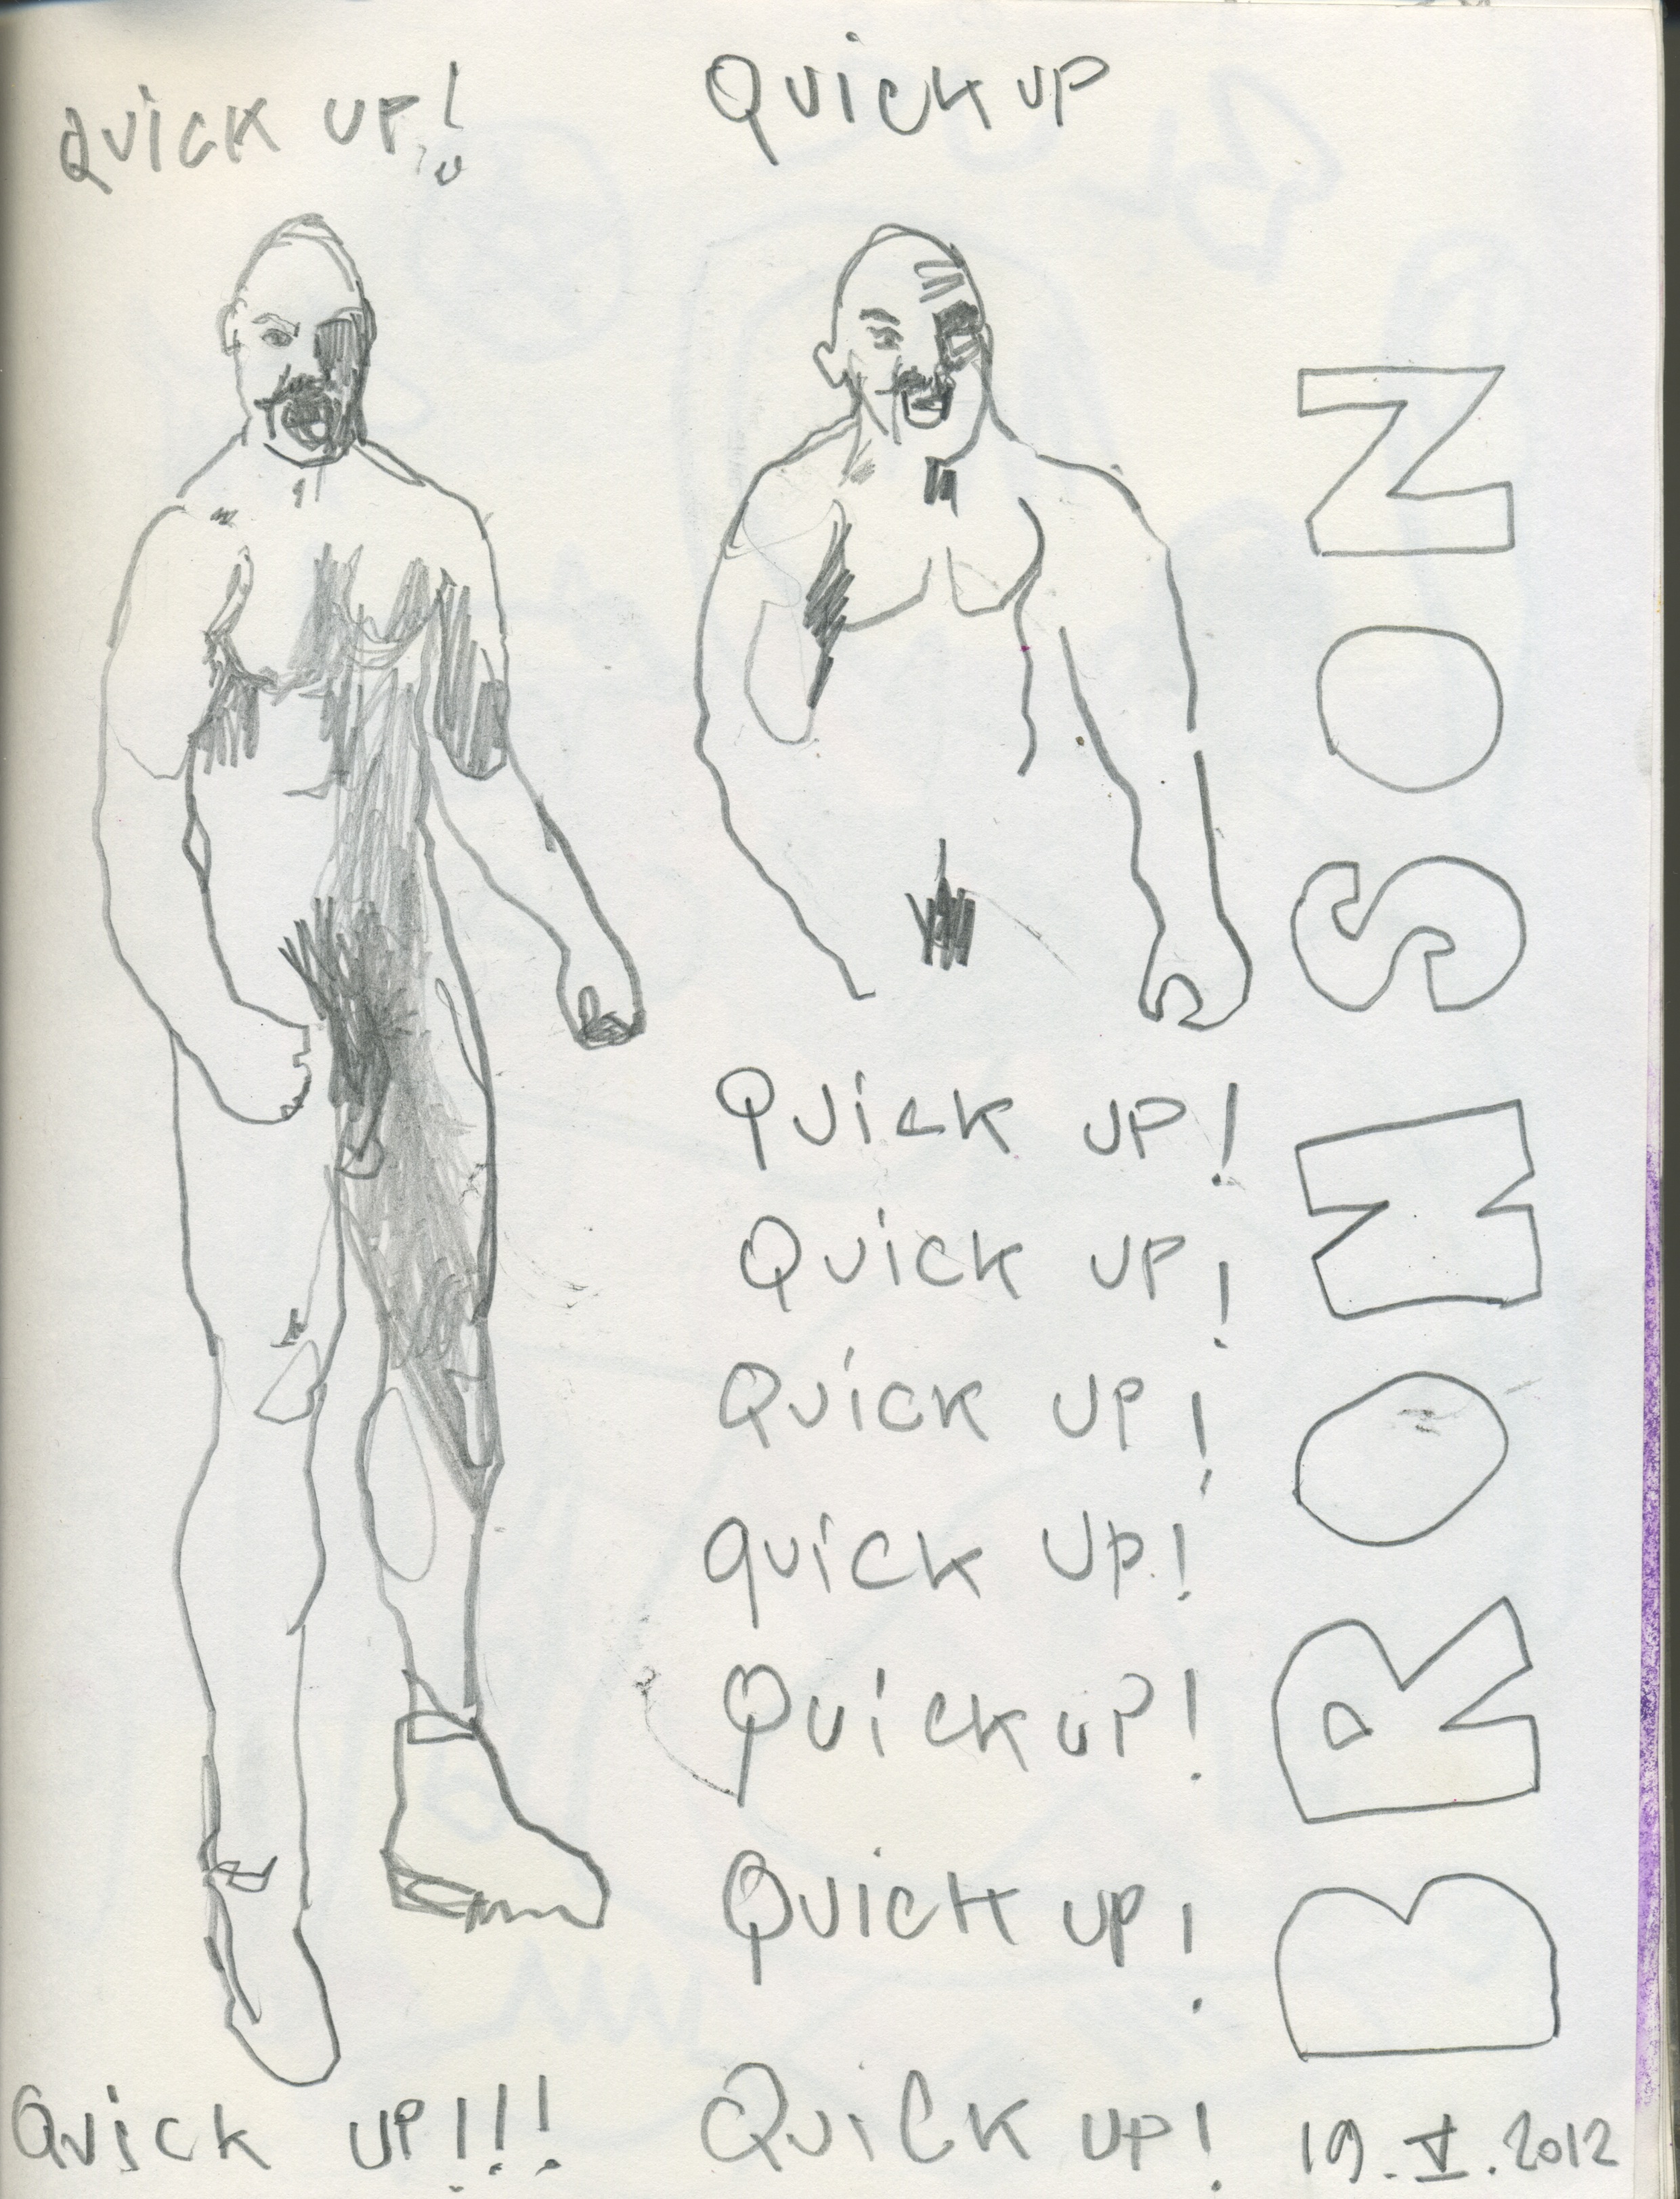 QUICK UP!
QUICK UP
QUICK UP!
QUICK UP!
QUICK UP!
QUICK UP!
QUICK UP!
QUICK UP!
QUICK UP!!!
QUICK UP!
BRONSON
19.V.2012